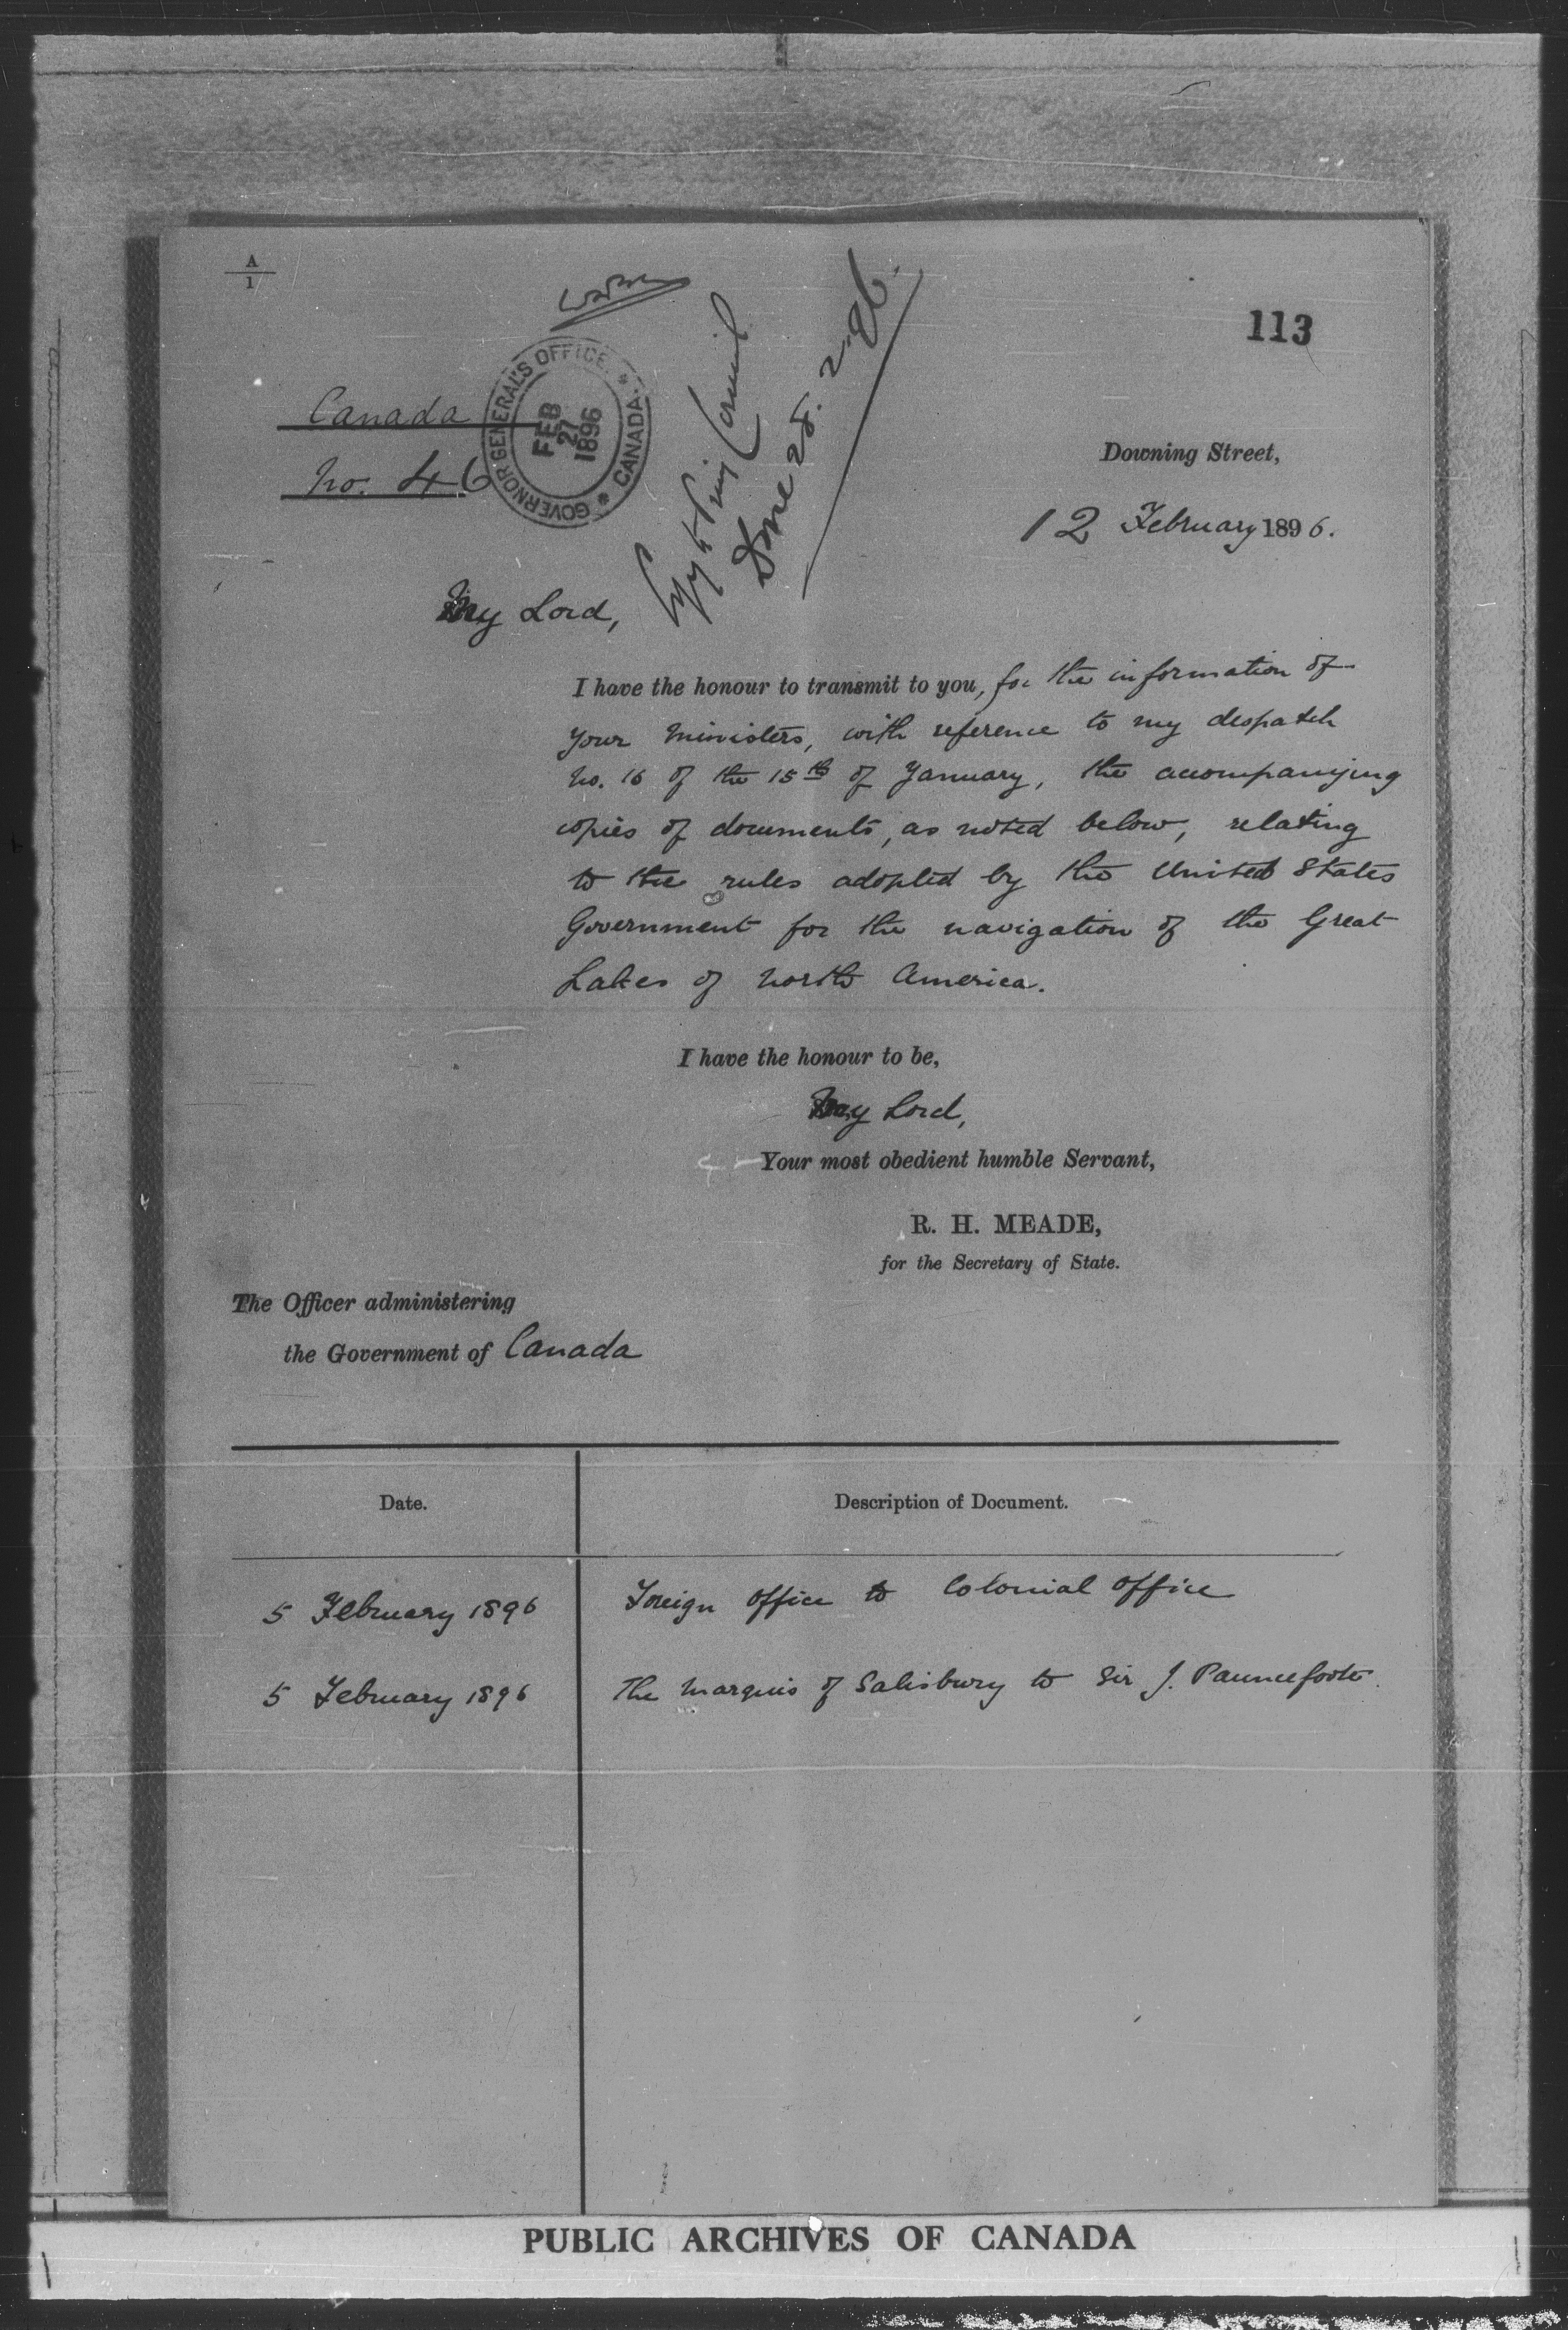 A
1
113
Canada
No. 46
GOVERNOR GENERAL'S OFFICE * CANADA *
FEB
27
1896
Copy to Privy Council
Done 28.2.96.
Downing Street,
12 February 1896.
My Lord,
I have the honour to transmit to you, for the information of
your Ministers, with reference to my despatch
No. 16 of the 15th of January, the accompanying
copies of documents, as noted below, relating
to the rules adopted by the United States
Government for the navigation of the Great
Lakes of North America.
I have the honour to be,
My Lord,
Your most obedient humble Servant,
R. H. MEADE,
for the Secretary of State.
The Officer administering
the Government of Canada
Date.
Description of Document.
5 February 1896
Foreign Office to Colonial Office
5 February 1896
The Marquis of Salisbury to Sir J. Pauncefoote.
PUBLIC ARCHIVES OF CANADA